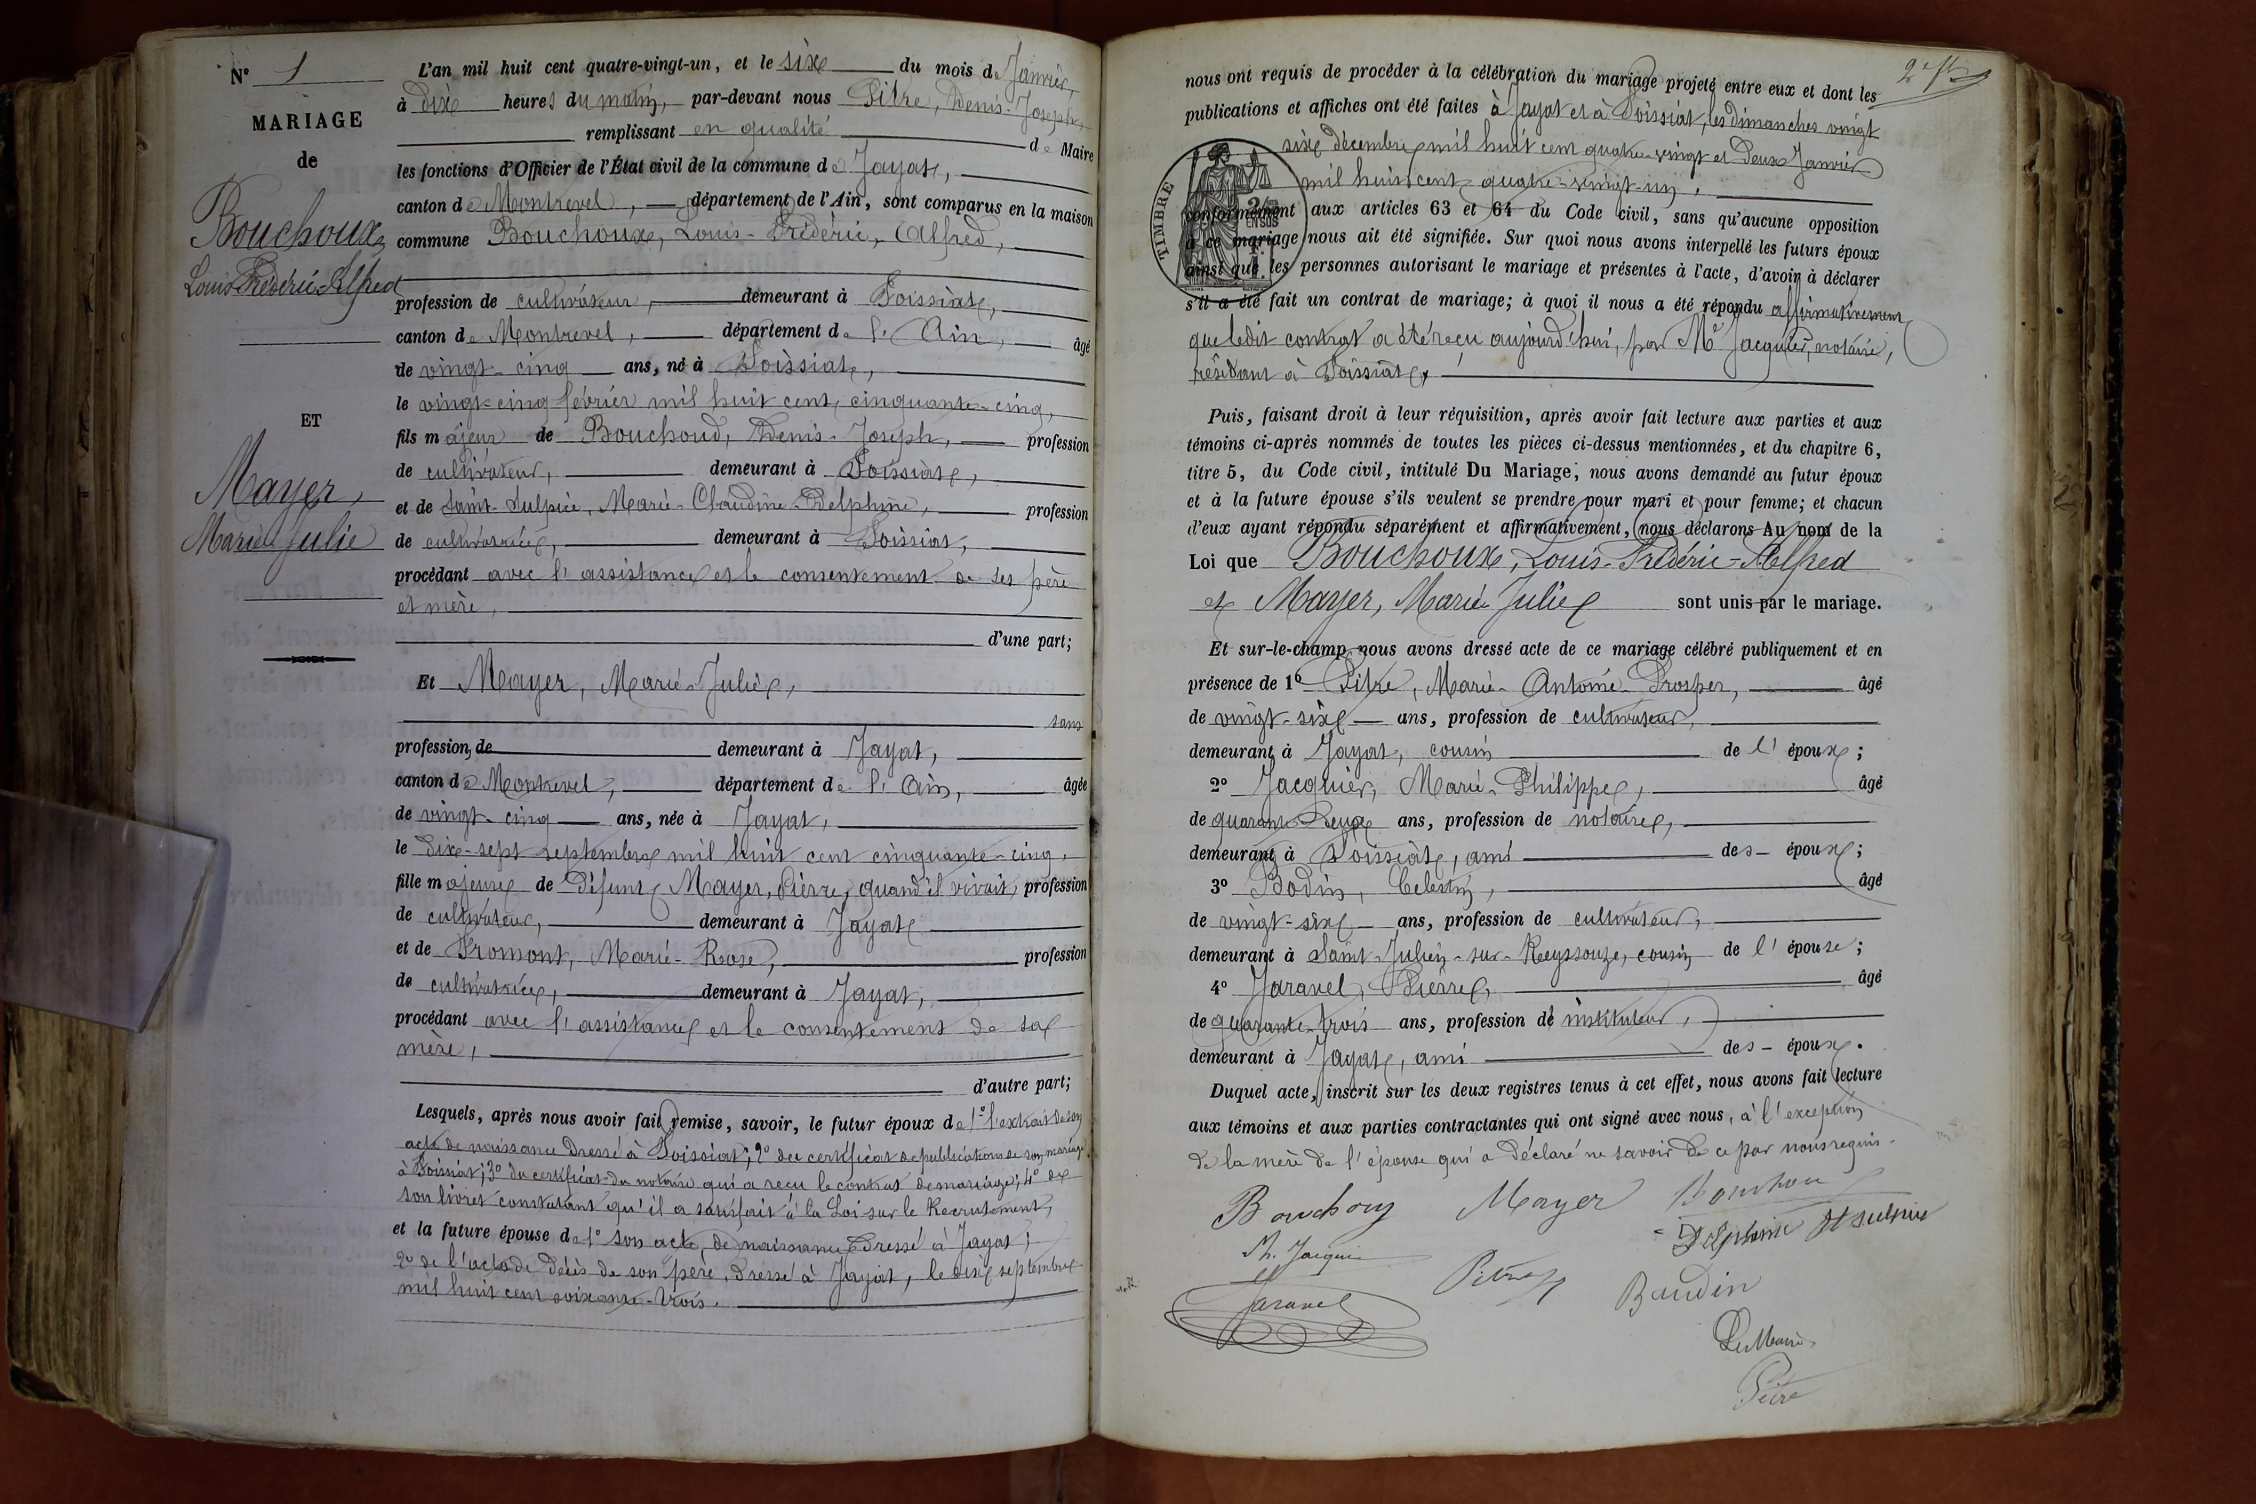 N° 1
MARIAGE
de
Bouchoux,
Louis-Frédéric-Alfred
ET
Mayer,
Marie-Julie
L'an mil huit cent quatre-vingt-un, et le six du mois de Janvier,
à dix heures du matin, par-devant nous Pitre, Denis-Joseph,
remplissant en qualité de Maire
les fonctions d'Officier de l'État civil de la commune de Jayat,
canton de Montrevel, département de l'Ain, sont comparus en la maison
commune Bouchoux, Louis-Frédéric-Alfred,
profession de cultivateur, demeurant à Foissiat,
canton de Montrevel, département de l'Ain, âgé
de vingt-cinq ans, né à Foissiat,
le vingt-cinq février mil huit cent cinquante-cinq,
fils majeur de Bouchoud, Denis-Joseph, profession
de cultivateur, demeurant à Foissiat,
et de Saint-Sulpice, Marie-Claudine-Delphine, profession
de cultivatrice, demeurant à Foissiat,
procédant avec l'assistance et le consentement de ses père
et mère,
d'une part;
Et Mayer, Marie-Julie,
sans
profession, de demeurant à Jayat,
canton de Montrevel, département de l'Ain, âgée
de vingt-cinq ans, née à Jayat,
le dix-sept septembre mil huit cent cinquante-cinq,
fille majeure de Défunt Mayer, Pierre, quand il vivait, profession
de cultivateur, demeurant à Jayat
et de Fromont, Marie-Rose, profession
de cultivatrice, demeurant à Jayat,
procédant avec l'assistance et le consentement de sa
mère,
d'autre part;
Lesquels, après nous avoir fait remise, savoir, le futur époux de 1° l'extrait de son
acte de naissance dressé à Foissiat; 2° du certificat de publications de son mariage
à Foissiat; 3° du certificat du notaire qui a reçu le contrat de mariage; 4° de
son livret constatant qu'il a satisfait à la Loi sur le Recrutement,
et la future épouse de 1° son acte de naissance dressé à Jayat;
2° de l'acte de décès de son père, dressé à Jayat, le six septembre
mil huit cent soixante-trois.
nous ont requis de procéder à la célébration du mariage projeté entre eux et dont les
publications et affiches ont été faites à Jayat et à Foissiat, les dimanches vingt
six décembre mil huit cent quatre-vingt et deux Janvier
mil huit cent quatre-vingt-un,
TIMBRE
conformément aux articles 63 et 64 du Code civil, sans qu'aucune opposition
à ce mariage nous ait été signifiée. Sur quoi nous avons interpellé les futurs époux
ainsi que les personnes autorisant le mariage et présentes à l'acte, d'avoir à déclarer
s'il a été fait un contrat de mariage; à quoi il nous a été répondu affirmativement
que ledit contrat a été reçu aujourd'hui, par Me Jacquier, notaire,
résidant à Foissiat,
Puis, faisant droit à leur réquisition, après avoir fait lecture aux parties et aux
témoins ci-après nommés de toutes les pièces ci-dessus mentionnées, et du chapitre 6,
titre 5, du Code civil, intitulé Du Mariage, nous avons demandé au futur époux
et à la future épouse s'ils veulent se prendre pour mari et pour femme; et chacun
d'eux ayant répondu séparément et affirmativement, nous déclarons Au nom de la
Loi que Bouchoux, Louis-Frédéric-Alfred
et Mayer, Marie Julie sont unis par le mariage.
Et sur-le-champ nous avons dressé acte de ce mariage célébré publiquement et en
présence de 1° Pitre, Marie-Antoine-Prosper, âgé
de vingt-six ans, profession de cultivateur,
demeurant à Jayat, cousin de l'époux;
2° Jacquier, Marie-Philippe, âgé
de quarante-deux ans, profession de notaire,
demeurant à Foissiat, ami des époux;
3° Bodin, Celestin, âgé
de vingt-six ans, profession de cultivateur,
demeurant à Saint-Julien-sur-Reyssouze, cousin de l'épouse;
4° Jaravel, Pierre, âgé
de quarante-trois ans, profession de instituteur,
demeurant à Jayat, ami des époux.
Duquel acte, inscrit sur les deux registres tenus à cet effet, nous avons fait lecture
aux témoins et aux parties contractantes qui ont signé avec nous, à l'exception
de la mère de l'épouse qui a déclaré ne savoir de ce par nous requis.
Bouchoux Mayer Bouchou
Ph. Jacquier Delphine St Sulpice
Jaravel Pitre Baudin
Le Maire,
Pitre